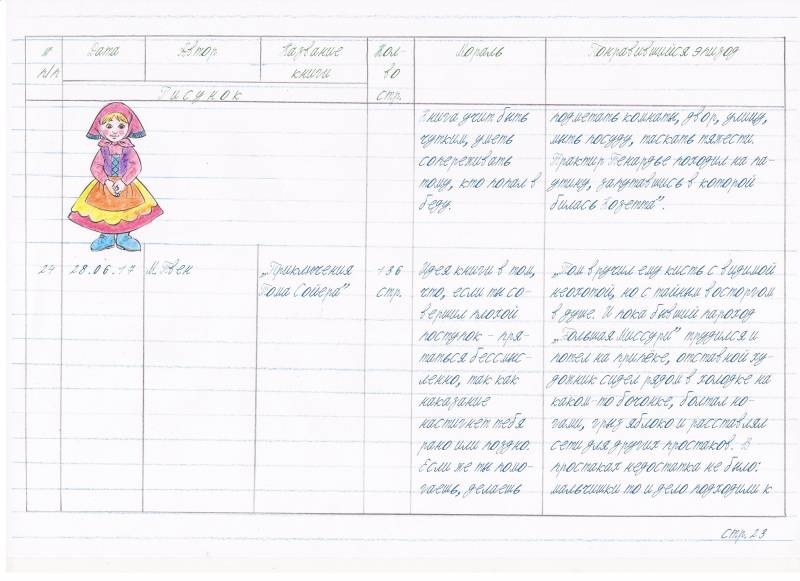 № Дата Автор Название Кол- Мораль Понравившийся эпизод
п/п книги во
Рисунок стр.
Книга учит быть
чутким, уметь
сопереживать
тому, кто попал в
беду.
подметать комнаты, двор, улицу,
мыть посуду, таскать тяжести.
Трактир Тенардье походил на па-
утину, запутавшись в которой
билась Козетта".
24 28.06.17 М.Твен „Приключения
Тома Сойера"
136
стр.
Идея книги в том,
что, если ты со-
вершил плохой
поступок - пря-
таться бессмыс-
ленно, так как
наказание
настигнет тебя
рано или поздно.
Если же ты помо-
гаешь, делаешь
„Том вручил ему кисть с видимой
неохотой, но с тайным восторгом
в душе. И пока бывший пароход
„Большая Миссури" трудился и
потел на припёке, отставной ху-
дожник сидел рядом в холодке на
каком-то бочонке, болтал но-
гами, грыз яблоко и расставлял
сети для других простаков. В
простаках недостатка не было:
мальчишки то и дело подходили к
стр. 23